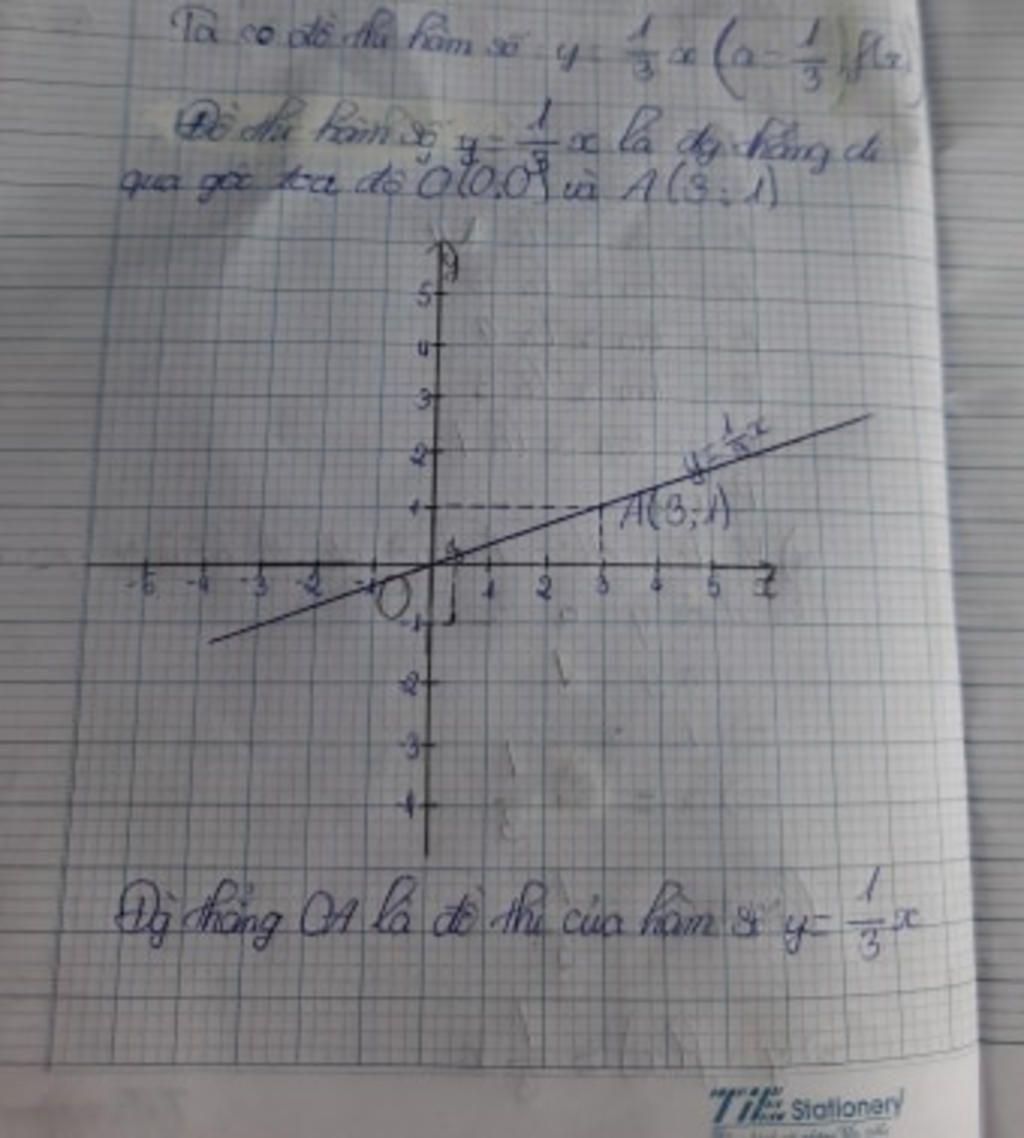 Ta có đồ thị hàm số y = 1/3 x (a = 1/3), f(x)
Đồ thị hàm số y = 1/3 x là đg thẳng đi
qua gốc tọa độ O(0;0) và A(3;1)
y
5
4
3
2
1
y = 1/3 x
A(3;1)
-5 -4 -3 -2 -1 O 1 2 3 4 5 x
-1
-2
-3
-4
Đg thẳng OA là đồ thị của hàm số y = 1/3 x
TiE Stationery